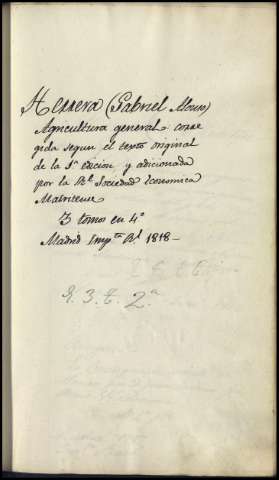 Herrera (Gabriel Alonso)
Agricultura general corre
gida segun el testo original
de la 1ª edicion y adicionada
por la Rl. Sociedad Economica
Matritense
3 tomos en 4º
Madrid Impta Rl. 1818-
E. 3. t. 2.ª